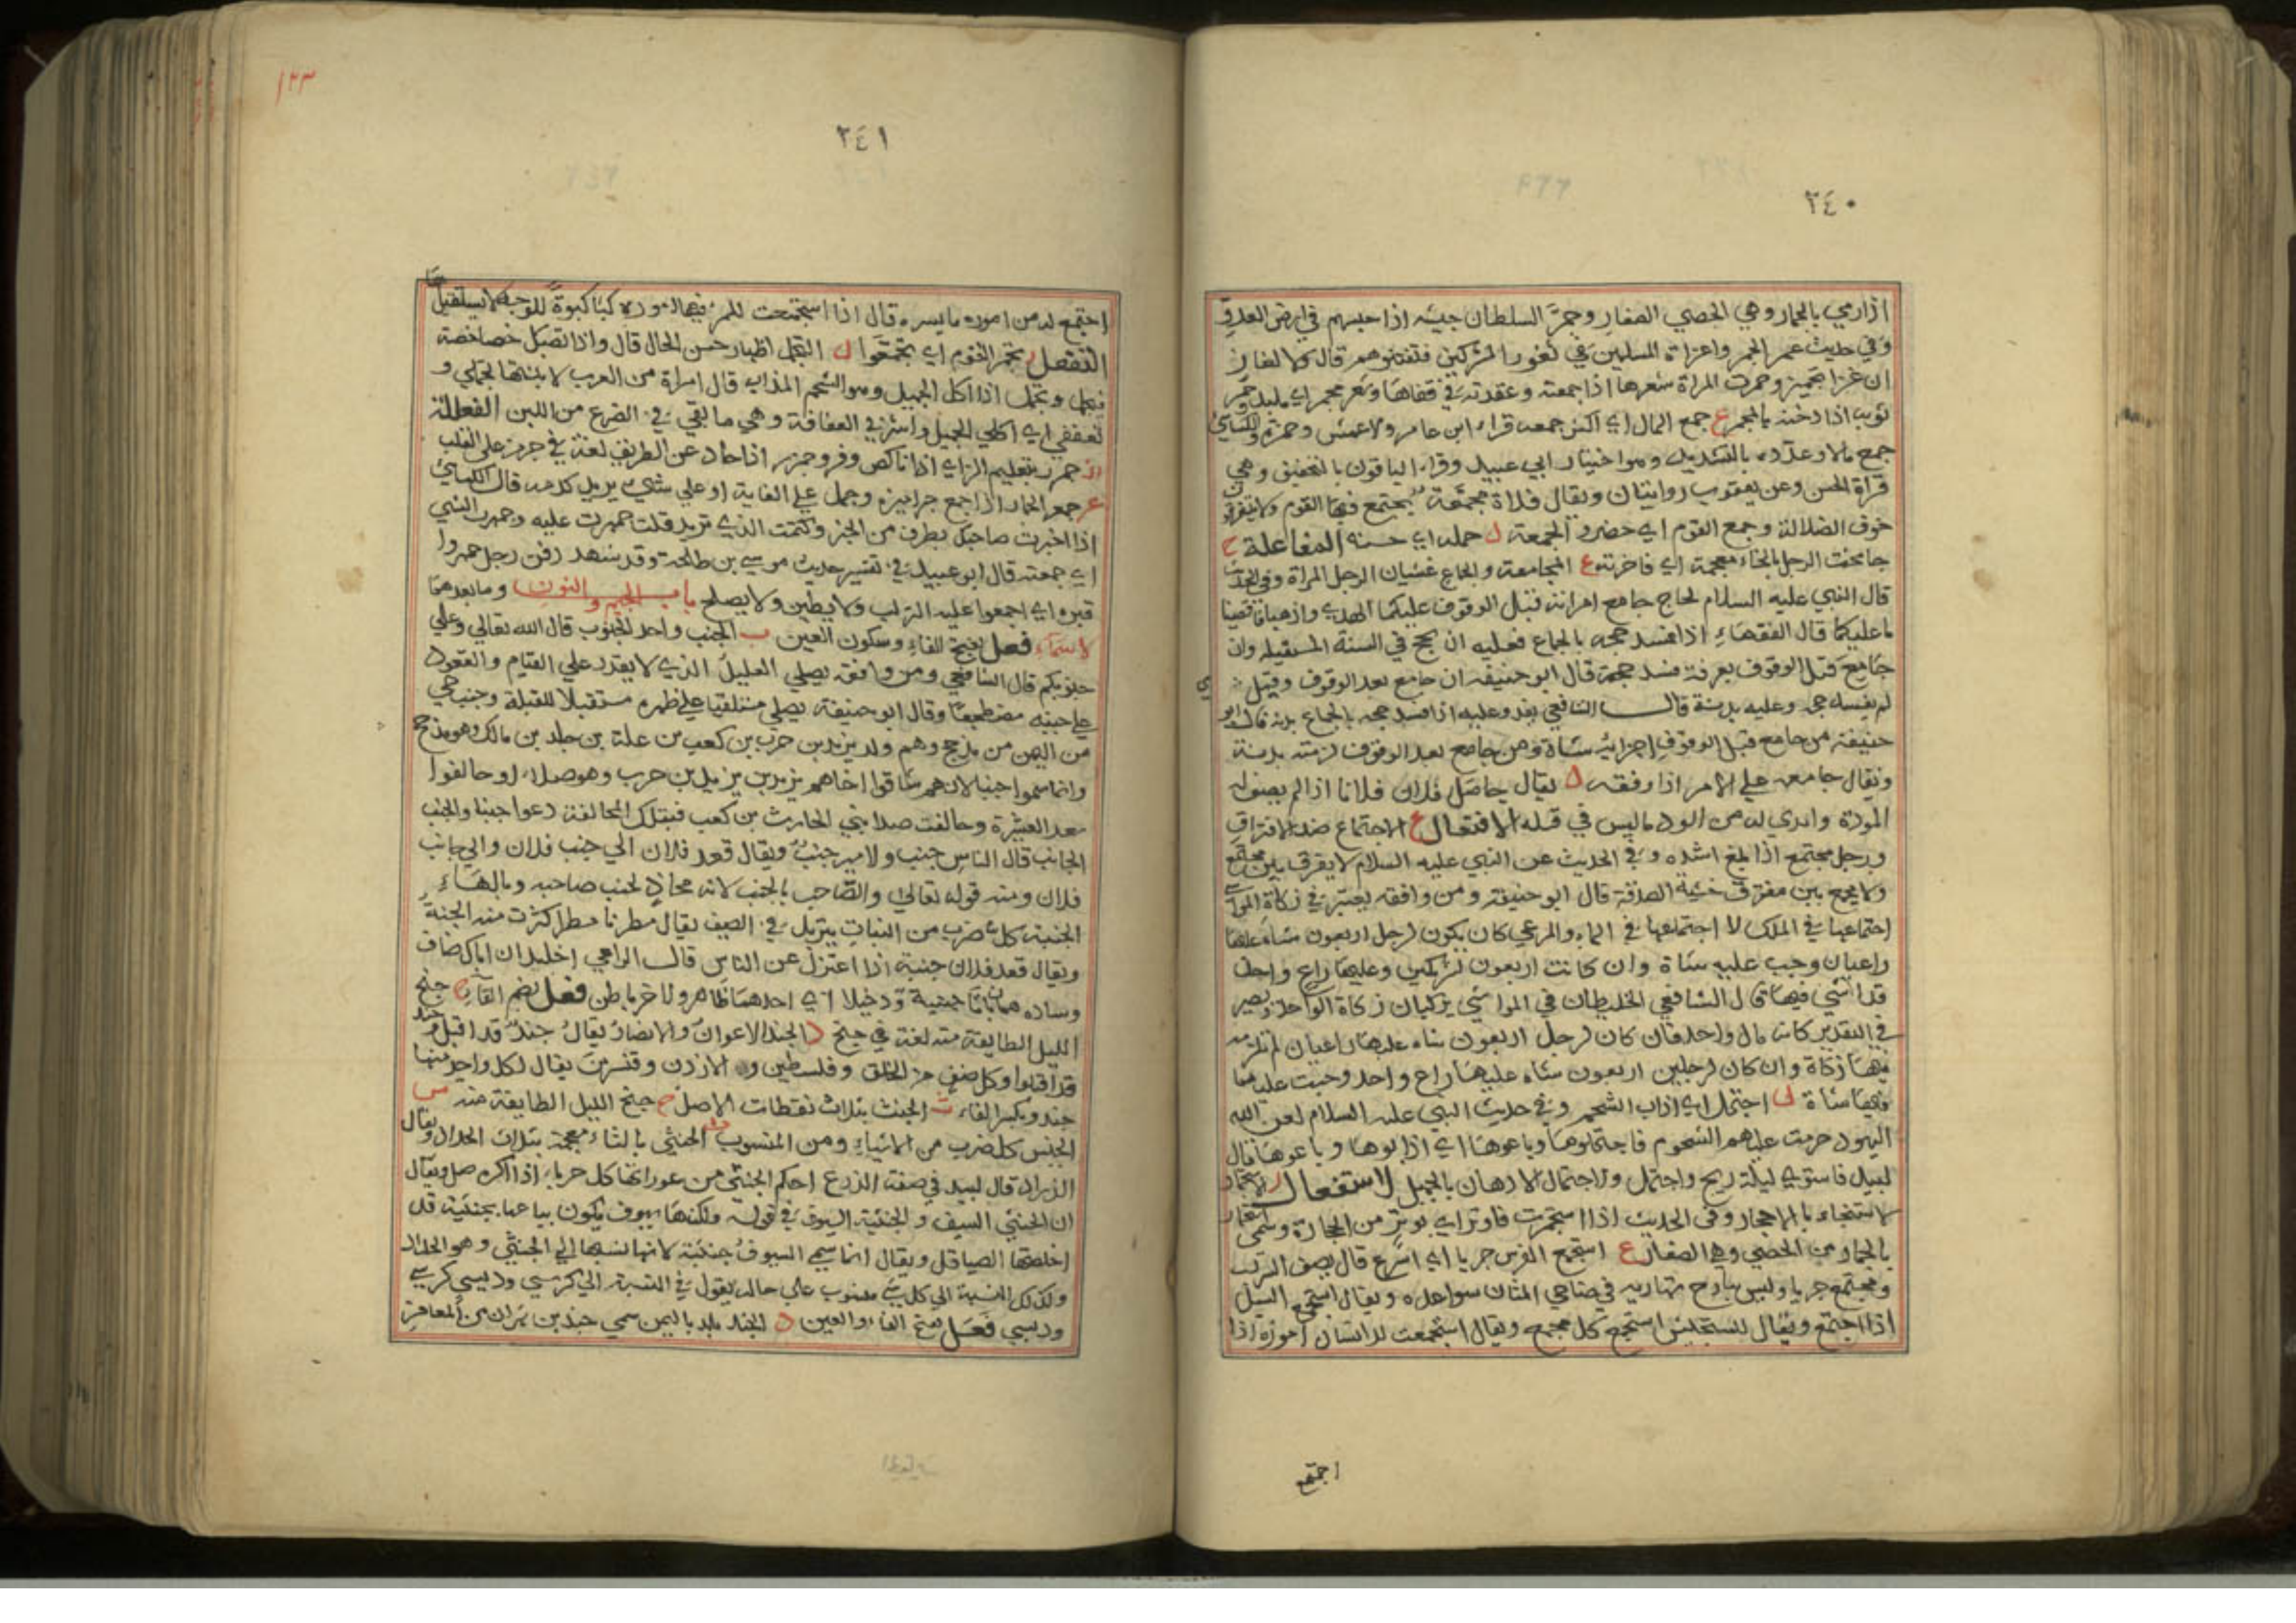 ٢٤٠
اذا رمي بالجمار وهي الحصي الصغار وجمر السلطان جيشه اذا حبسهم في ارض العدو
وفي حديث عمر لا تجمروا غزاة المسلمين في ثغور المشركين فتفتنوهم قال كلا لغاز
ان غزا تجمير وجمرت المراة شعرها اذا جمعته وعقدته في قفاها وشعر مجمر اي ملبد وجمر
ثوبه اذا دخنه بالمجمر ع جمع المال اي اكثر جمعه قراء ابن عامر والاعمش وحمزة والكسائي
جمع مالا وعدده بالتشديد وهو اختيار ابي عبيد وقراء الباقون بالتخفيف وهي
قراة الحسن وعن يعقوب روايتان ويقال فلاة مجمعة يجتمع فيها القوم ولا يتفرقون
خوف الضلالة وجمع القوم اي حضروا الجمعة ل جمله اي حسنه المفاعلة خ
جامخت الرجل بالخاء معجمة اي فاخرته ع المجامعة والجماع غشيان الرجل المراة وفي الحديث
قال النبي عليه السلام لحاج جامع امراته قبل الوقوف عليكما الهدي واذهبا فاقضيا
ما عليكما قال الفقهاء اذا فسد حجه بالجماع فعليه ان يحج في السنة المستقبله وان
جامع قبل الوقوف بعرفة فسد حجه قال ابو حنيفه ان جامع بعد الوقوف وقبل
لم يفسد حجه وعليه بدنة قال الشافعي يفسد وعليه اذا فسد حجه بالجماع بدنة قال ابو
حنيفة من جامع قبل الوقوف اجزاته شاة ومن جامع بعد الوقوف لزمته بدنة
ويقال جامعه علي الامر اذا وفقه ل يقال جامل فلان فلانا اذا لم يصف له
المودة وابدي له من الود ما ليس في قلبه الافتعال ع الاجتماع ضد الافتراق
ورجل مجتمع اذا بلغ اشده وفي الحديث عن النبي عليه السلام لا يفرق بين مجتمع
ولا يجمع بين مفترق خشية الصدقة قال ابو حنيفة ومن وافقه يعتبر في زكاة المواشي
اجتماعها في الملك لا اجتماعها في الماء والمرعي كان يكون لرجل اربعون شاة عليها
راعيان وجب عليه شاة وان كانت اربعون لشريكين وعليها راع واحد
فلا شي فيها قال الشافعي الخليطان في المواشي يزكيان زكاة الواحد ويصير
في التقدير كانه مال واحد فان كان لرجل اربعون شاة عليها راعيان لم تلزمه
فيها زكاة وان كان لرجلين اربعون شاة عليها راع واحد وجبت عليهما
فيها شاة ل اجتمل اي اذاب الشحم وفي حديث النبي عليه السلام لعن الله
اليهود حرمت عليهم الشحوم فاجتملوها وباعوها اي اذابوها وباعوها قال
لبيد فاشتوي ليلة ريح واجتمل والاجتمال الادهان بالجميل الاستفعال ر الاستجمار
الاستنجاء بالاحجار وفي الحديث اذا استجمرت فاوتر اي بوتر من الحجارة وسمى استجمار
بالجمار من الحصي وهي الصغار ع استجمع الفرس جريا اي اسرع قال يصف السراب
ومجتمع جريا وليس ببارح تباريه في ضاحي المتان سواعده ويقال استجمع السيل
اذا اجتمع ويقال للمستجيش استجمع كل مجمع ويقال استجمعت للانسان اموره اذا
اجتمع
٢٤١
١٢٣
اجتمع له من اموره ما يسره قال اذا استجمعت للمرء فيها اموره كبا كبوة للوجه لا يستقيلها
التفعل ر تجمر القوم اي تجمعوا ل التجمل اظهار حسن الحال قال واذا تصبك خصاصة
فتجمل وتجمل اذا اكل الجميل وهو الشحم المذاب قال امراة من العرب لابنتها تجملي و
تعففي اي اكلي الجميل واشربي العفافة وهي ما بقي في الضرع من اللبن الفعللة
ز جمرز بتقديم الراي اذا ناكص وفر وجمرز اذا حاد عن الطريق لغة في جرمز على القلب
ع جمعر الحمار اذا جمع جراميزه وحمل علي العانة او علي شي يريد كدمه قال الكسائي
اذا اخبرت صاحبك بطرف من الخبر وكتمت الذي تريد قلت جمهرت عليه وجمهرت الشي
اي جمعته قال ابو عبيد في تفسير حديث موسي بن طلحة وقد شهد دفن رجل جمهروا
قبره اي اجمعوا عليه التراب ولا يطين ولا يصلح باب الجيم والنون وما بعدهما
الاسماء فعل بفتح الفاء وسكون العين ب الجنب واحد الجنوب قال الله تعالي وعلي
جنوبكم قال الشافعي ومن وافقه يصلي العليل الذي لا يقدر علي القيام والقعود
علي جنبه مضطجعا وقال ابو حنيفة يصلي مستلقيا علي ظهره مستقبلا للقبلة وجنب حي
من اليمن من مذحج وهم ولد يزيد بن حرب بن كعب بن علة بن جلد بن مالك وهو مذحج
وانما سموا جنبا لانهم شاقوا اخاهم يزيد بن يزيد بن حرب وهو صداء وحالفوا
سعد العشيرة وحالفت صداء بني الحارث بن كعب فبتلك المحالفة دعوا جنبا والجنب
الجانب قال الناس جنب والامير جنب ويقال قعد فلان الي جنب فلان والي جانب
فلان ومنه قوله تعالي والصاحب بالجنب لانه محاذ لجنب صاحبه وبالهاء
الجنبة كل ضرب من النبات يتربل في الصيف يقال مطرنا مطرا كثرت منه الجنبة
ويقال قعد فلان جنبة اذا اعتزل عن الناس قال الراعي اخليد ان اباك ضاف
وساده همان باتا جنبة ودخيلا اي احدهما ظاهر والاخر باطن فعل بضم الفاء ح جنح
الليل الطايفة منه لغة في جنح د الجند الاعوان والانصار يقال جند قد اقبل وجند
قد اقبلوا وكل صنف من الخلق وفلسطين والاردن وقنسرين يقال لكل واحد منها
جند وبكسر الفاء ث الجنث بثلاث نقطات الاصل ح جنح الليل الطايفة منه س
الجنس كل ضرب من الاشياء ومن المنسوب ث الجنثي بالثاء معجمة بثلاث الحداد ويقال
الزراد قال لبيد في صفة الدرع احكم الجنثي من عوراتها كل حرباء اذا اكره صل ويقال
ان الجنثي السيف والجنثية السيوف في قوله ولكنها سيوف يكون بياعها بجنثية قد
اخلصتها الصياقل ويقال انما سمي السيوف جنثية لانها نسبها الي الجنثي وهو الحداد
وكذلك النسبة الي كل شي منسوب علي حاله يقول في النسبة الي كرسي ودبسي كرسي
ودبسي فعل بفتح الفاء والعين د الجند بلد باليمن سمي جند بن شهران من المعافر